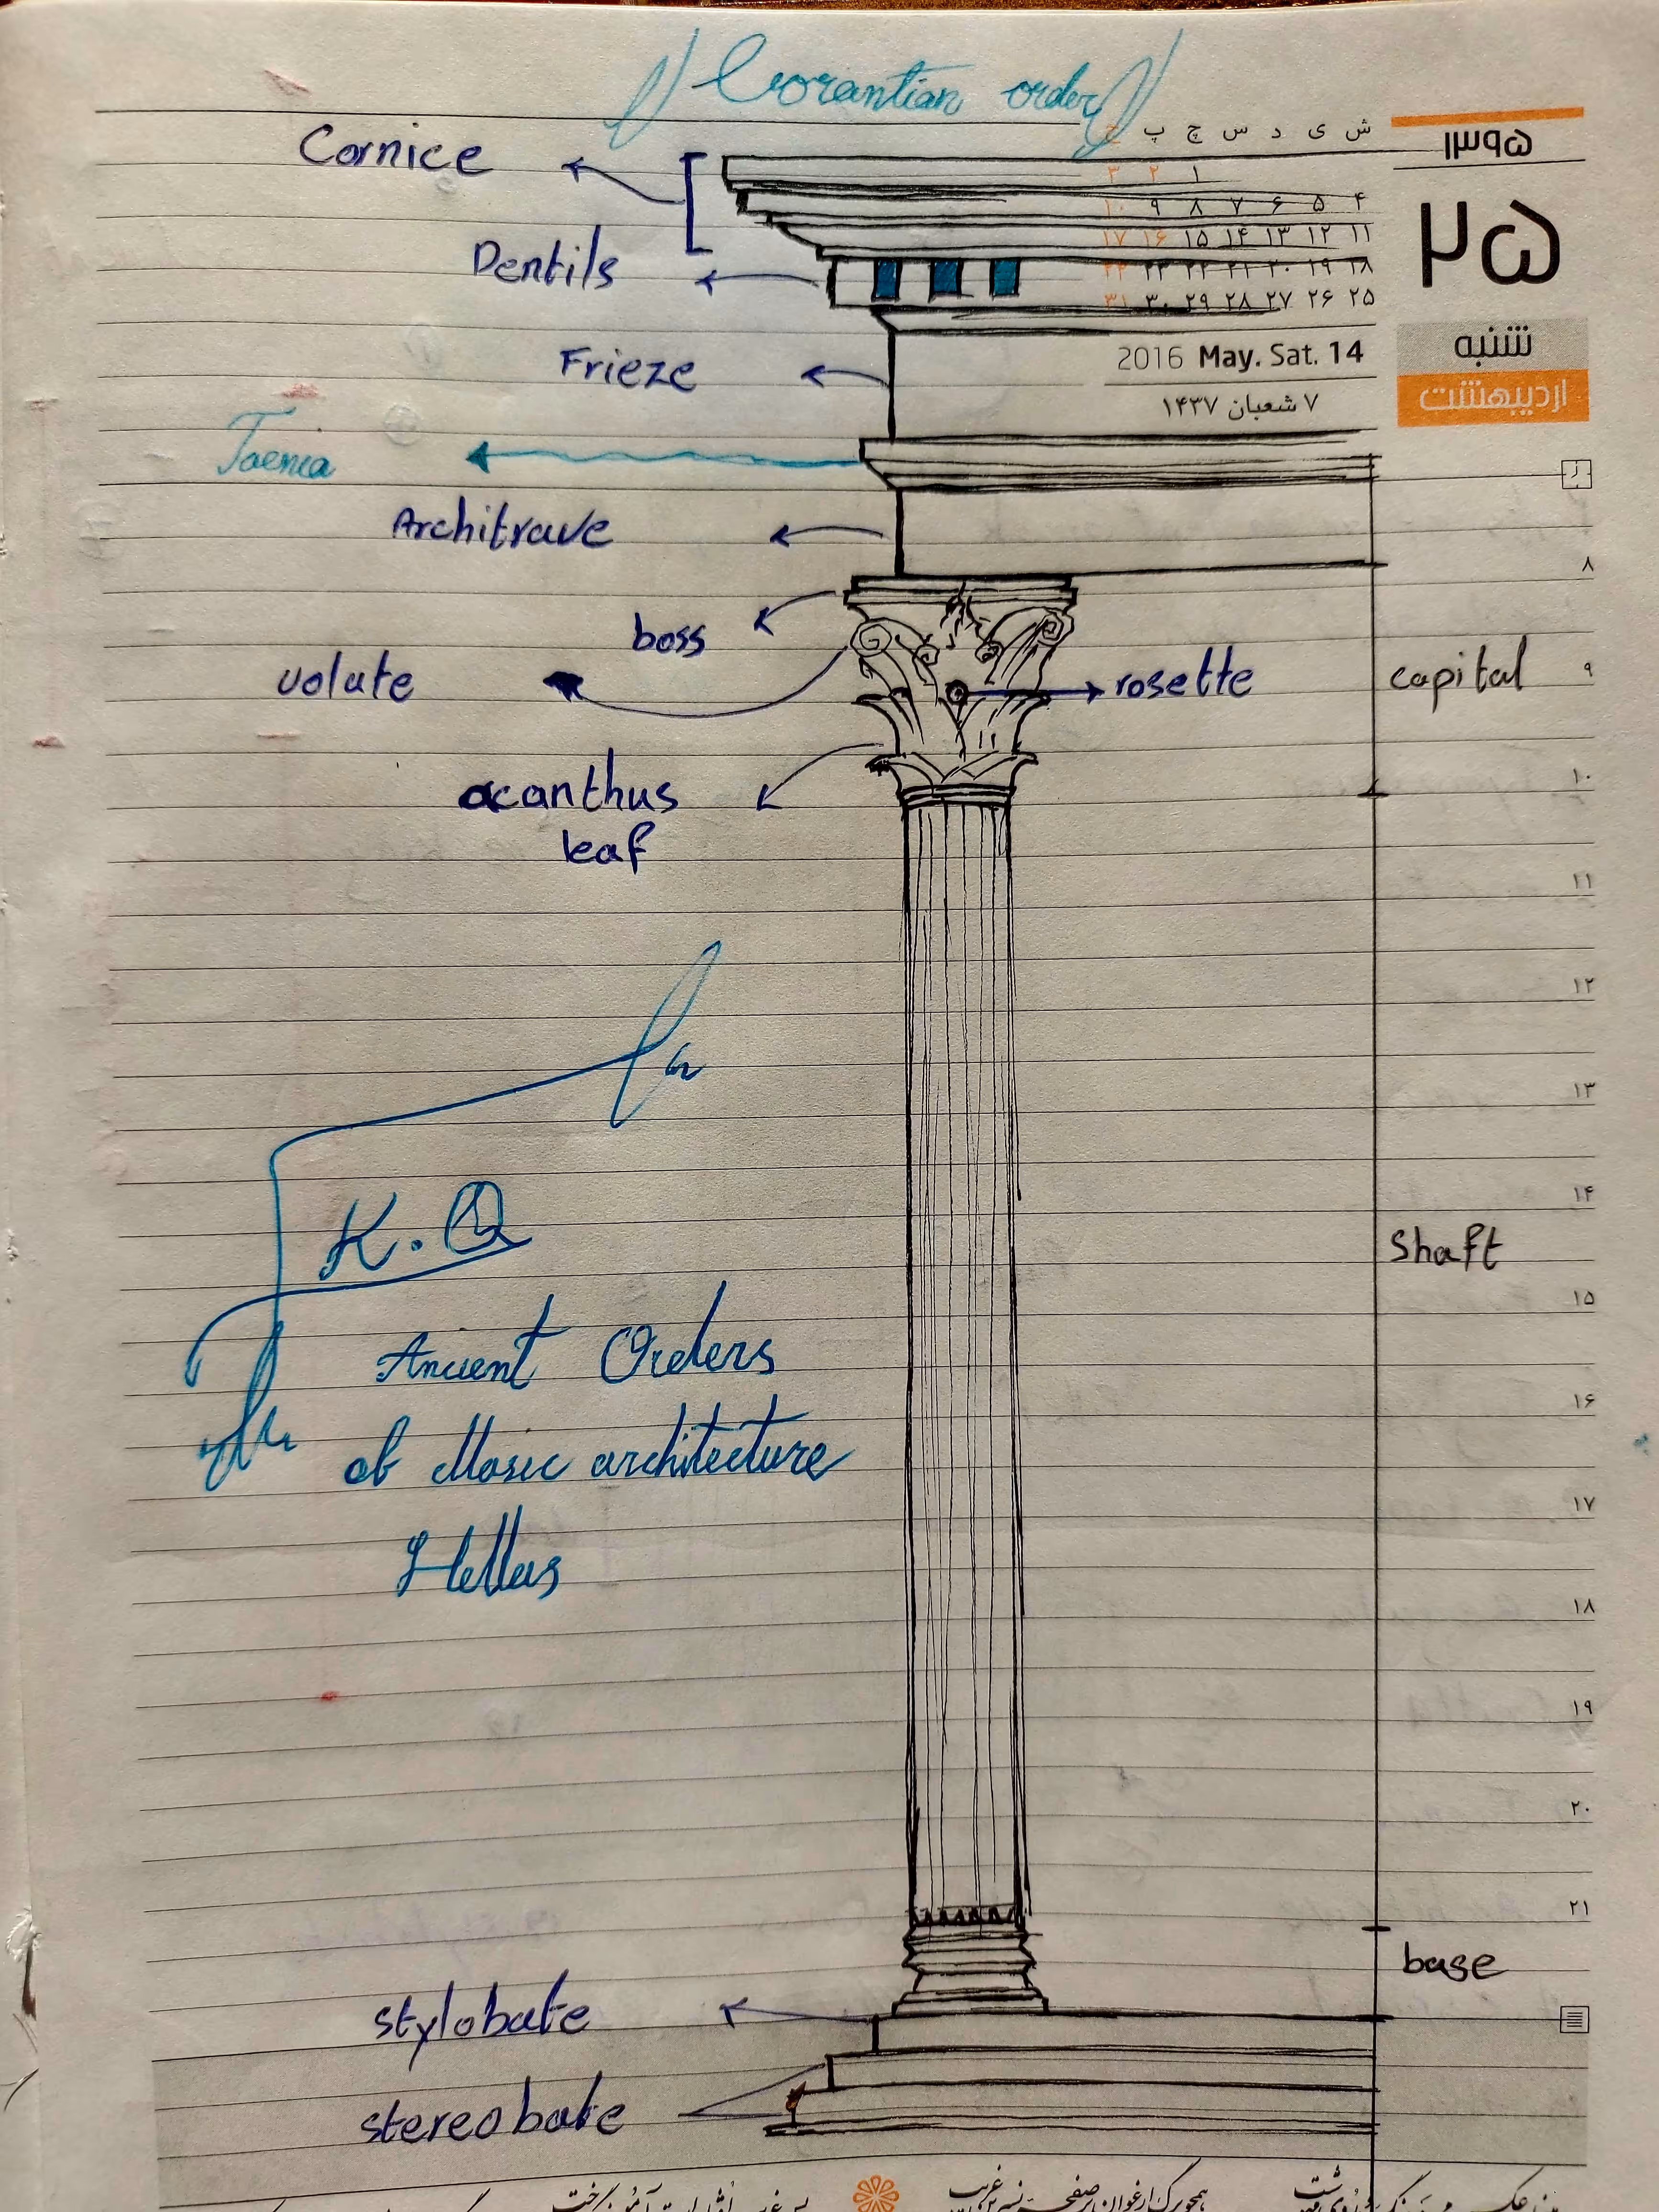 Corantian order
۱۳۹۵
ش ی د س چ پ ج
Cornice
۱ ۲ ۳
۴ ۵ ۶ ۷ ۸ ۹ ۱۰
۲۵
۱۱ ۱۲ ۱۳ ۱۴ ۱۵ ۱۶ ۱۷
Dentils
۱۸ ۱۹ ۲۰ ۲۱ ۲۲ ۲۳ ۲۴
۲۵ ۲۶ ۲۷ ۲۸ ۲۹ ۳۰ ۳۱
شنبه
2016 May. Sat. 14
Frieze
اردیبهشت
۷ شعبان ۱۴۳۷
Taenia
Architrave
۸
boss
volute
rosette
capital
۹
acanthus
leaf
۱۰
۱۱
۱۲
۱۳
۱۴
K.Q
shaft
۱۵
Ancient Orders
۱۶
of architecture
۱۷
Hellas
۱۸
۱۹
۲۰
۲۱
base
stylobate
stereobate